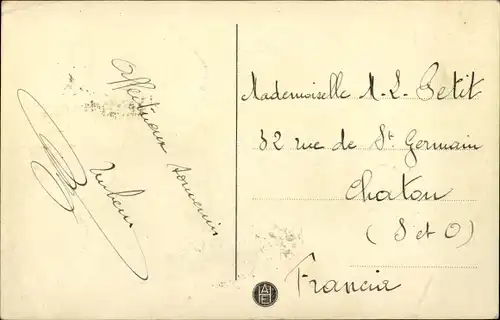 Affectueux souvenir
Mademoiselle M-L. Petit
32 rue de St Germain
Chatou
(S et O)
Francia